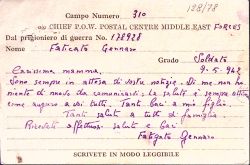 128/78
Campo Numero 310
c/o CHIEF P.O.W. POSTAL CENTRE MIDDLE EAST FORCES
Dal prigioniero di guerra No. 128928
Nome Faticato Gennaro
Grado Soldato
Carissima mamma, 9.5.942
Sono sempre in attesa di vostre notizie. Di me non ho
niente di nuovo da comunicarvi. La salute è sempre ottima
come auguro a voi tutti. Tanti baci a mio figlio.
Tanti saluti a tutti di famiglia
Ricevete affettuosi saluti e baci
Faticato Gennaro
SCRIVETE IN MODO LEGGIBILE